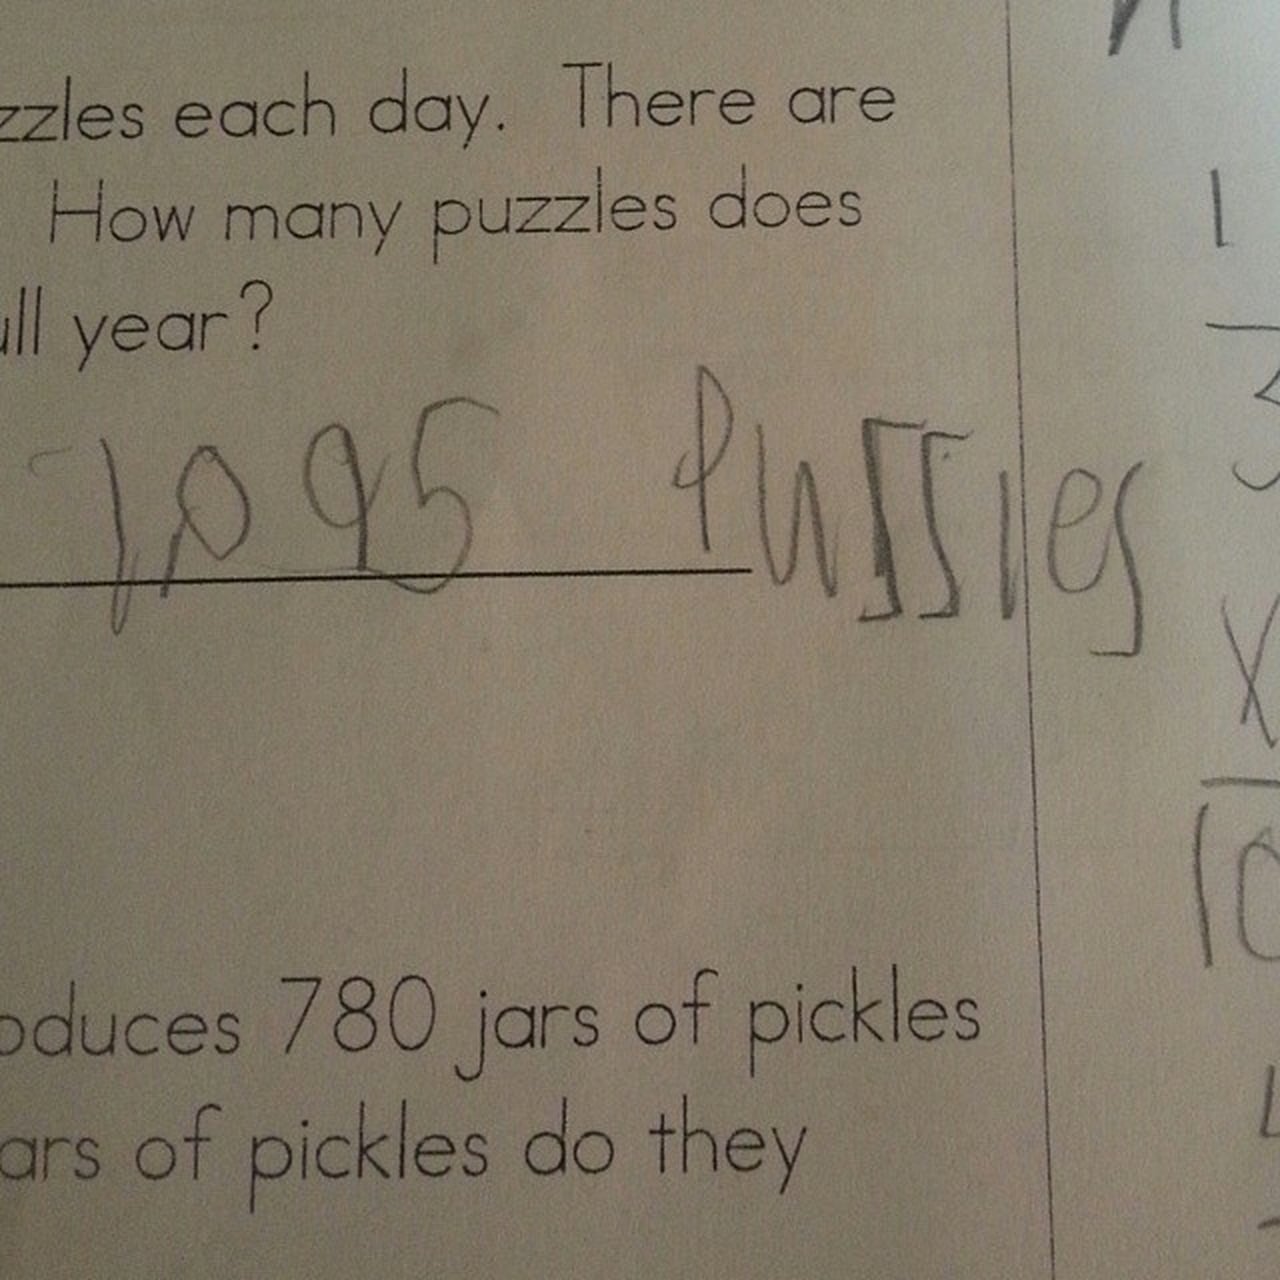 zzles each day. There are
How many puzzles does
ull year?
1,095 Pussles
oduces 780 jars of pickles
ars of pickles do they